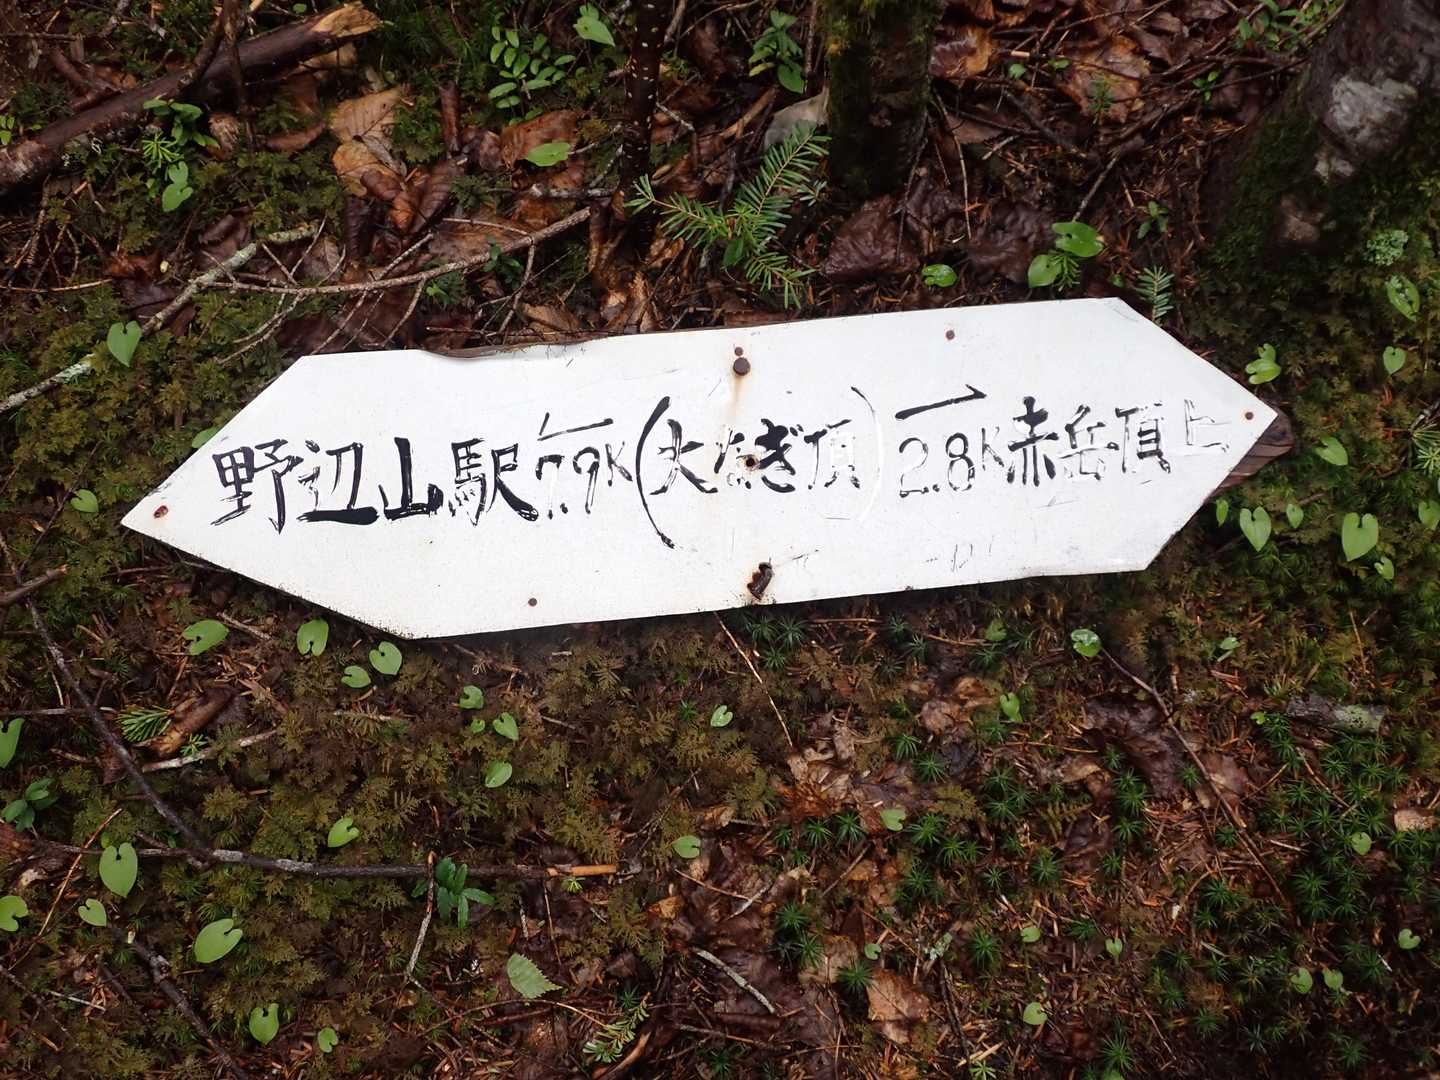 野辺山駅 ← 7.9K (大なぎ頂) → 2.8K 赤岳頂上